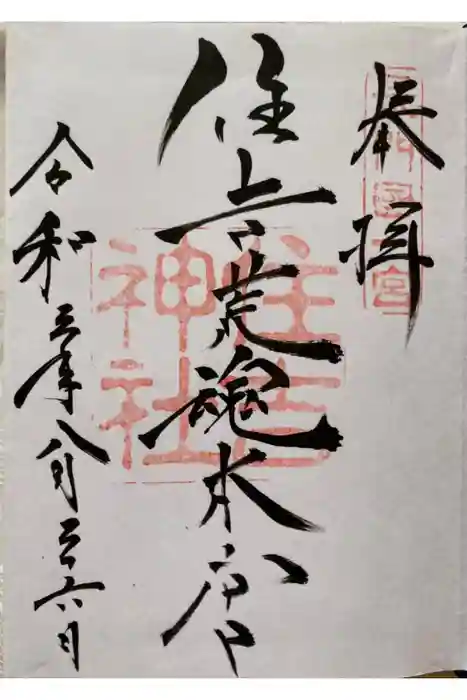 奉拝
長門國一宮
住吉荒魂本宮
住吉
神社
令和三年八月二十六日